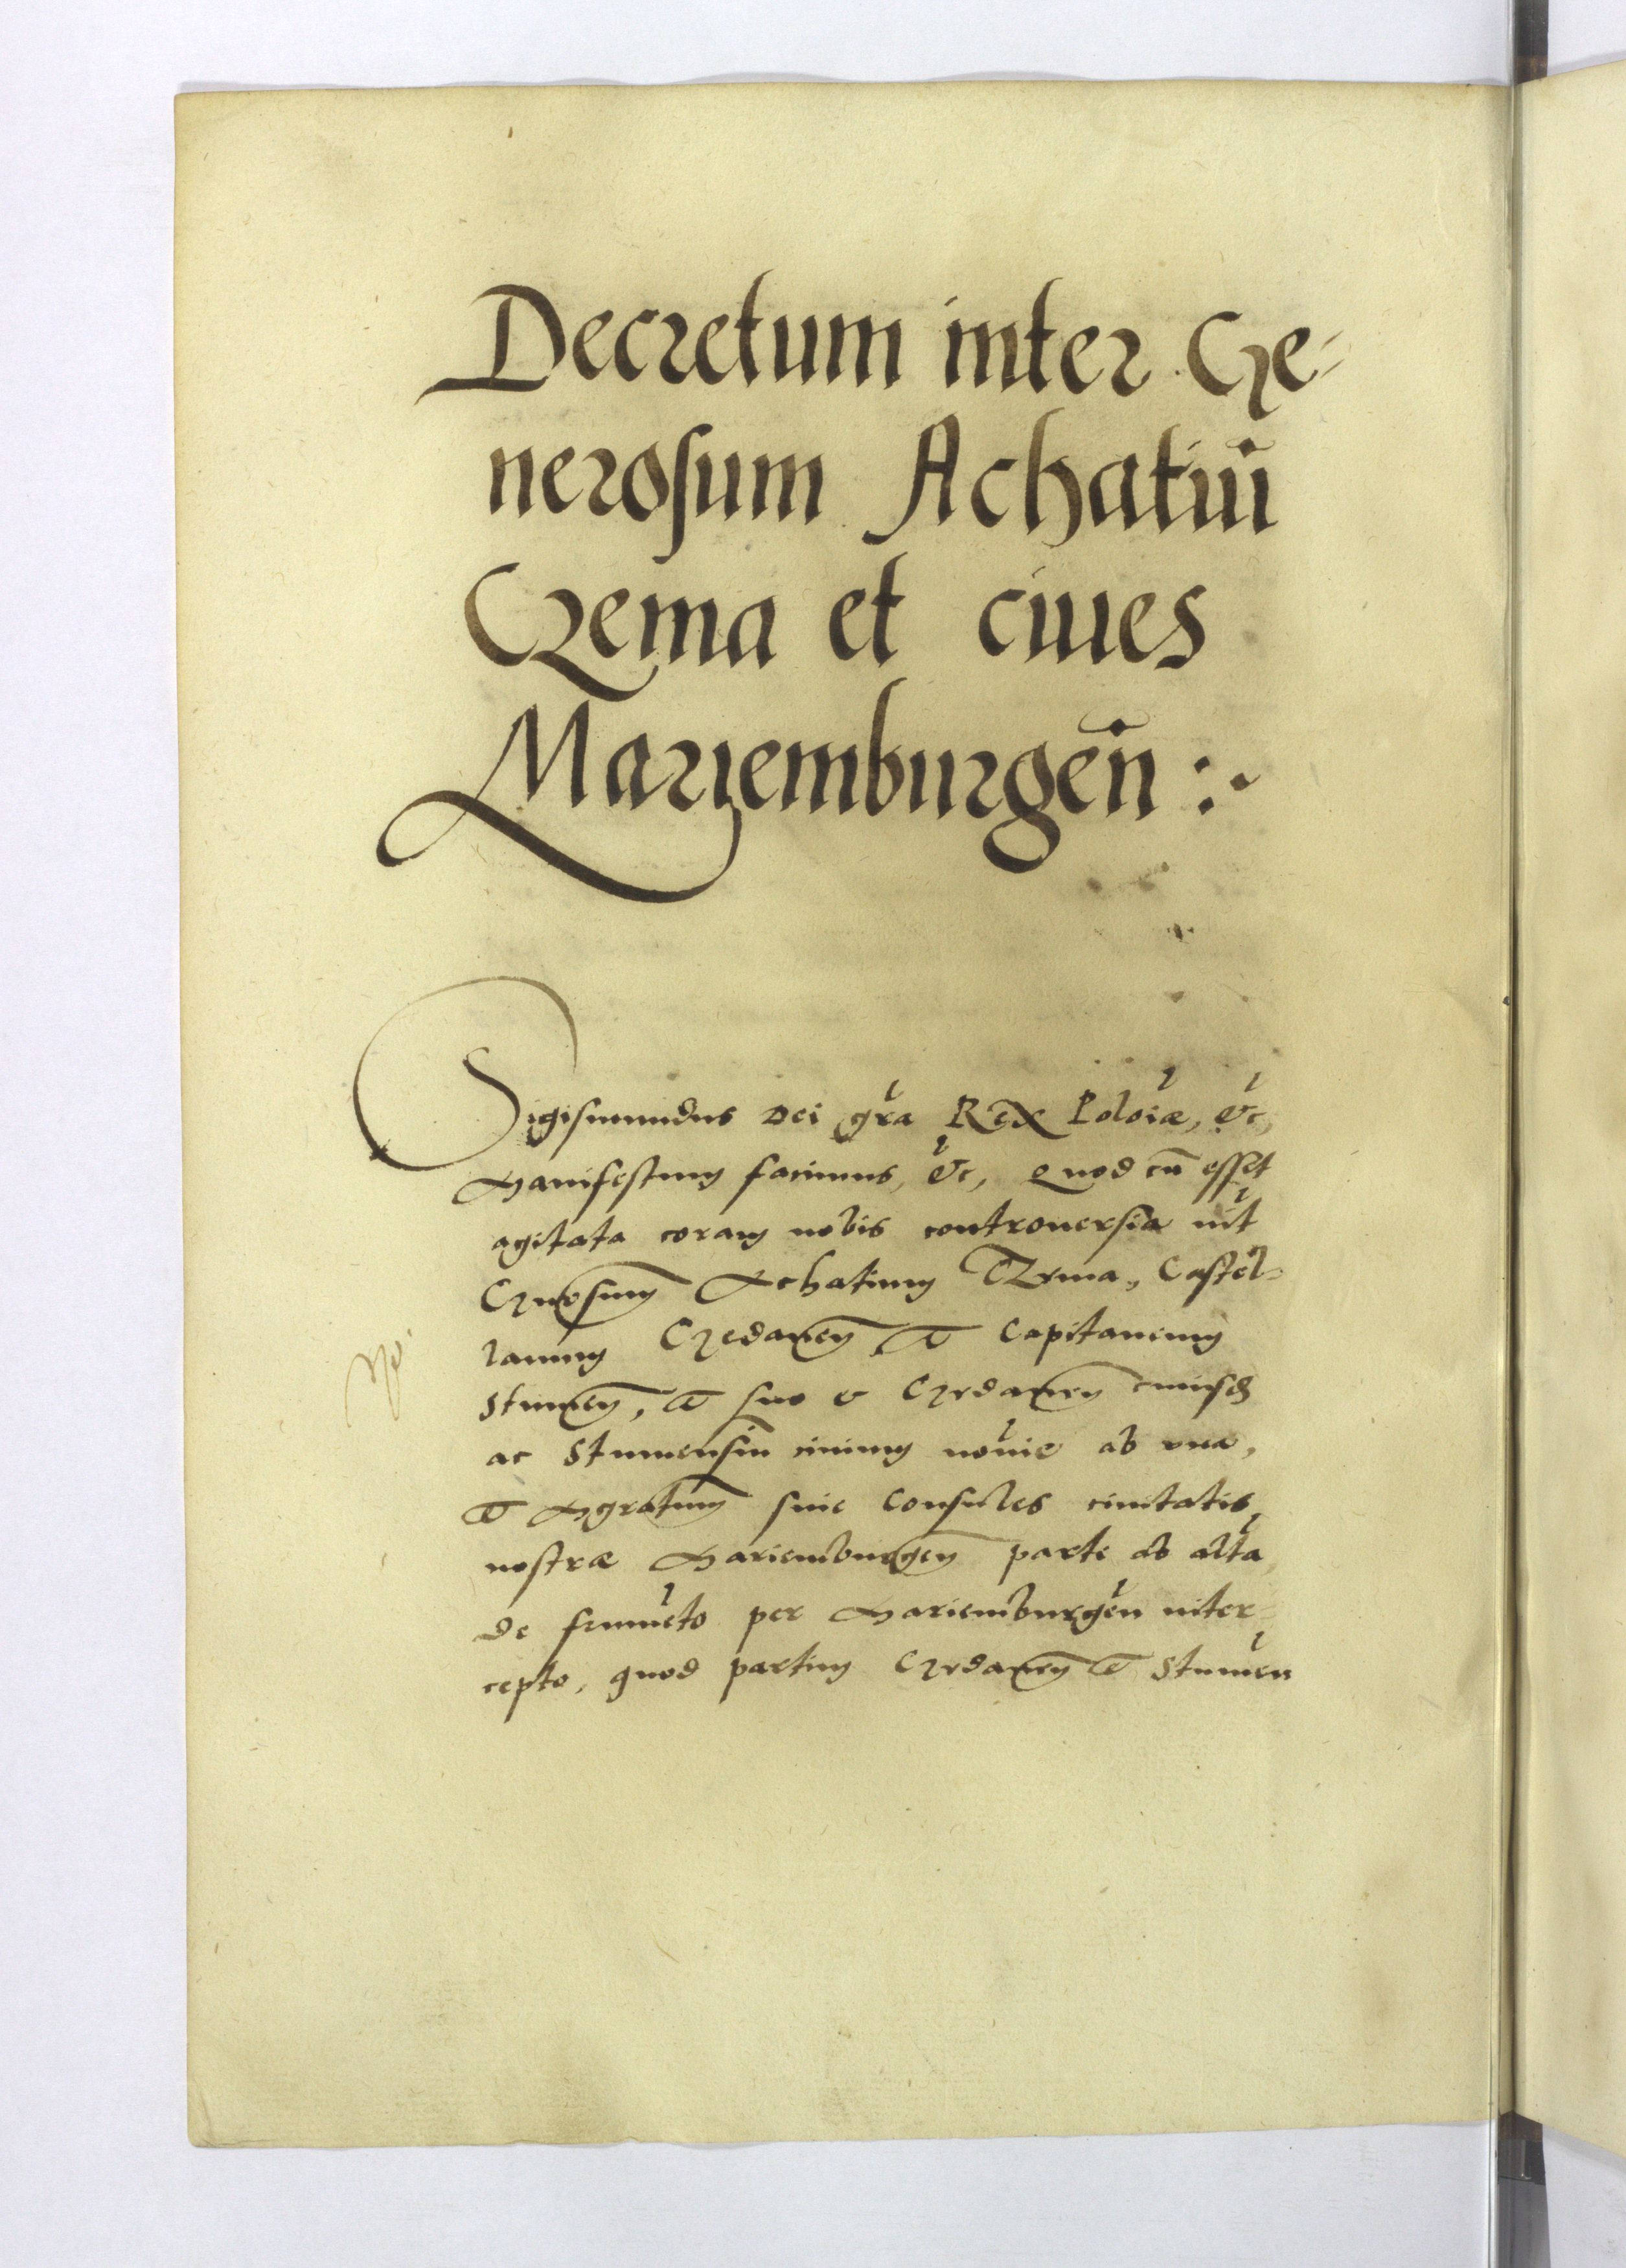 Decretum inter Ge-
nerosum Achatiū
Czema et ciues
Mariemburgeñ :~
Sigismundus Dei gr̃a Rex Polõiæ, &c,
Manifestum facimus, &c, Quod cũ esset
agitata coram nobis controuersia int̃
Gñosum Achatium Czema, Castel-
lanum Gedaneñ et Capitaneum
Stumeñ, et suo & Gedaneñ eiusđ
ac Stumensiũ ciuium noĩe ab vna,
et Mgratum siue Consules ciuitatis
nostræ Mariemburgeñ parte ab altã
de frumẽto per Mariemburgeñ inter-
cepto, quod partim Gedaneñ et Stumeñ